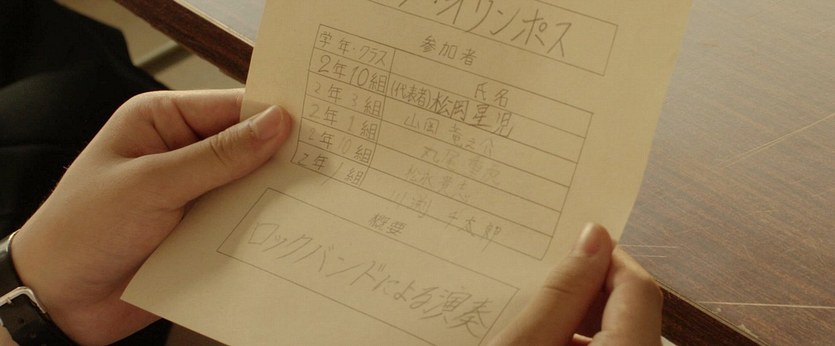 オリンポス
参加者
学年・クラス 氏名
2年10組 (代表者)松岡星児
2年3組 山国
2年1組
2年10組 松永
2年1組 小渕 千太郎
概要
ロックバンドによる演奏